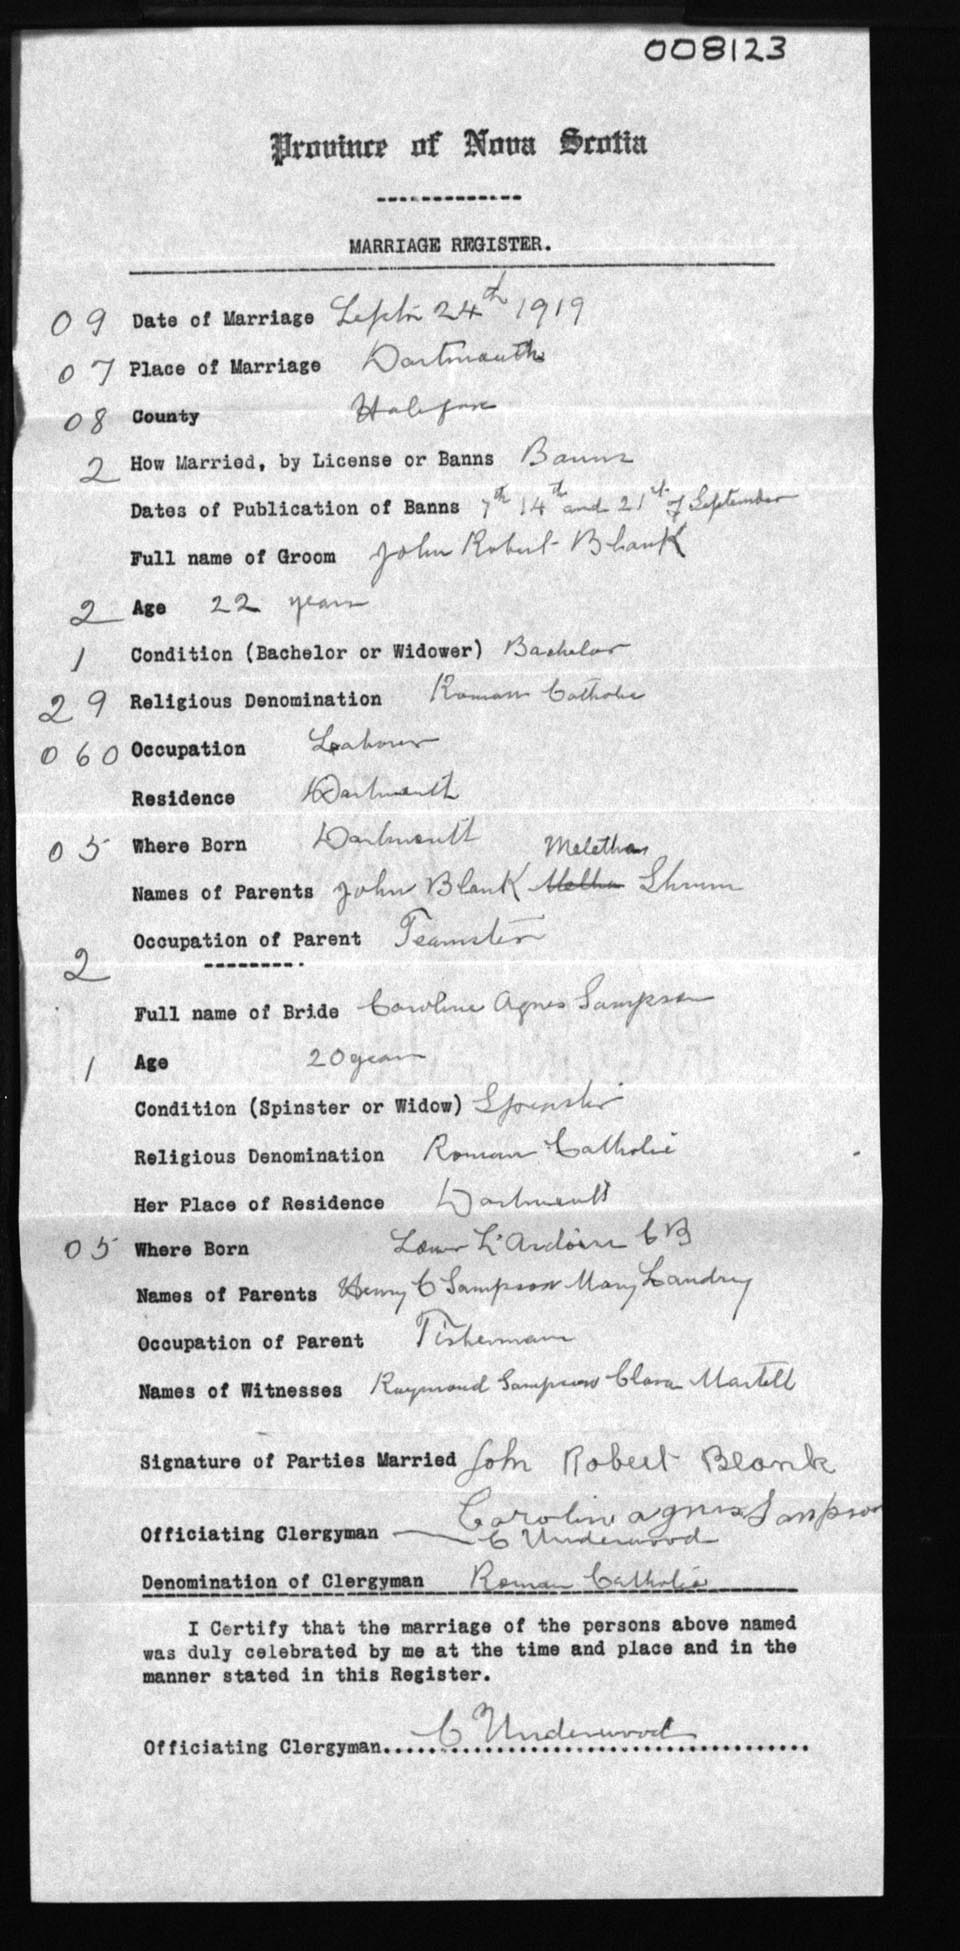 008123
Province of Nova Scotia
MARRIAGE REGISTER.
09 Date of Marriage Septr 24th 1919
07 Place of Marriage Dartmouth
08 County Halifax
2 How Married, by License or Banns Banns
Dates of Publication of Banns 7th 14th and 21st of September
Full name of Groom John Robert Blank
2 Age 22 years
1 Condition (Bachelor or Widower) Bachelor
29 Religious Denomination Roman Catholic
060 Occupation Labourer
Residence Dartmouth
05 Where Born Dartmouth
Melethan
Names of Parents John Blank Shrum
Occupation of Parent Teamster
2
Full name of Bride Caroline Agnes Sampson
1 Age 20 years
Condition (Spinster or Widow) Spinster
Religious Denomination Roman Catholic
Her Place of Residence Dartmouth
05 Where Born Lower L'Ardoise CB
Names of Parents Henry C Sampson Mary Landry
Occupation of Parent Fisherman
Names of Witnesses Raymond Sampson Clara Martell
Signature of Parties Married John Robert Blank
Caroline Agnes Sampson
Officiating Clergyman C Underwood
Denomination of Clergyman Roman Catholic
I Certify that the marriage of the persons above named
was duly celebrated by me at the time and place and in the
manner stated in this Register.
Officiating Clergyman C Underwood